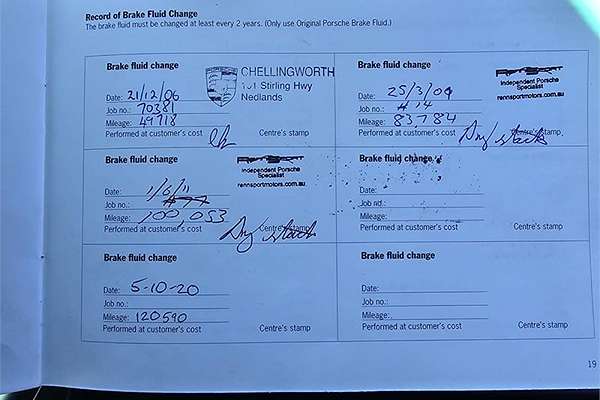 Record of Brake Fluid Change
The brake fluid must be changed at least every 2 years. (Only use Original Porsche Brake Fluid.)
Brake fluid change
Date: 21/12/06
Job no.: 70381
Mileage: 49718
Performed at customer's cost
CHELLINGWORTH
Stirling Hwy
Nedlands
Brake fluid change
Date: 25/3/09
Job no.:
Mileage: 83,784
Performed at customer's cost
Independent Porsche
Specialist
rennsportmotors.com.au
Centre's stamp
Brake fluid change
Date: 1/6/11
Job no.:
Mileage: 100,053
Performed at customer's cost
Independent Porsche
Specialist
rennsportmotors.com.au
Centre's stamp
Brake fluid change
Date:
Job no.:
Mileage:
Performed at customer's cost
Centre's stamp
Brake fluid change
Date: 5-10-20
Job no.:
Mileage: 120590
Performed at customer's cost
Centre's stamp
Brake fluid change
Date:
Job no.:
Mileage:
Performed at customer's cost
Centre's stamp
19